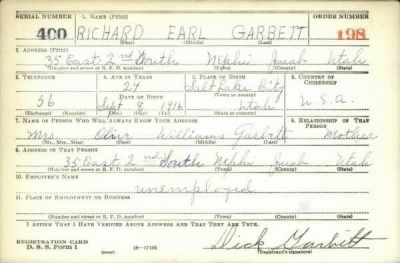 SERIAL NUMBER 1. NAME (Print) ORDER NUMBER
400 RICHARD EARL GARBETT 198
(First) (Middle) (Last)
2. ADDRESS (Print)
35 East 2nd South Nephi Juab Utah
(Number and street or R. F. D. number) (Town) (County) (State)
3. TELEPHONE 4. AGE IN YEARS 5. PLACE OF BIRTH 6. COUNTRY OF CITIZENSHIP
24 Salt Lake City
DATE OF BIRTH (Town or county)
56 Sept 8 1916 Utah U.S.A.
(Exchange) (Number) (Mo.) (Day) (Yr.) (State or country)
7. NAME OF PERSON WHO WILL ALWAYS KNOW YOUR ADDRESS 8. RELATIONSHIP OF THAT PERSON
Mrs Olive Williams Garbett Mother
(Mr., Mrs., Miss) (First) (Middle) (Last)
9. ADDRESS OF THAT PERSON
35 East 2nd South Nephi Juab Utah
(Number and street or R. F. D. number) (Town) (County) (State)
10. EMPLOYER'S NAME
unemployed
11. PLACE OF EMPLOYMENT OR BUSINESS
(Number and street or R. F. D. number) (Town) (County) (State)
I AFFIRM THAT I HAVE VERIFIED ABOVE ANSWERS AND THAT THEY ARE TRUE.
REGISTRATION CARD
D. S. S. Form 1 (over) Dick Garbett
(Registrant's signature)